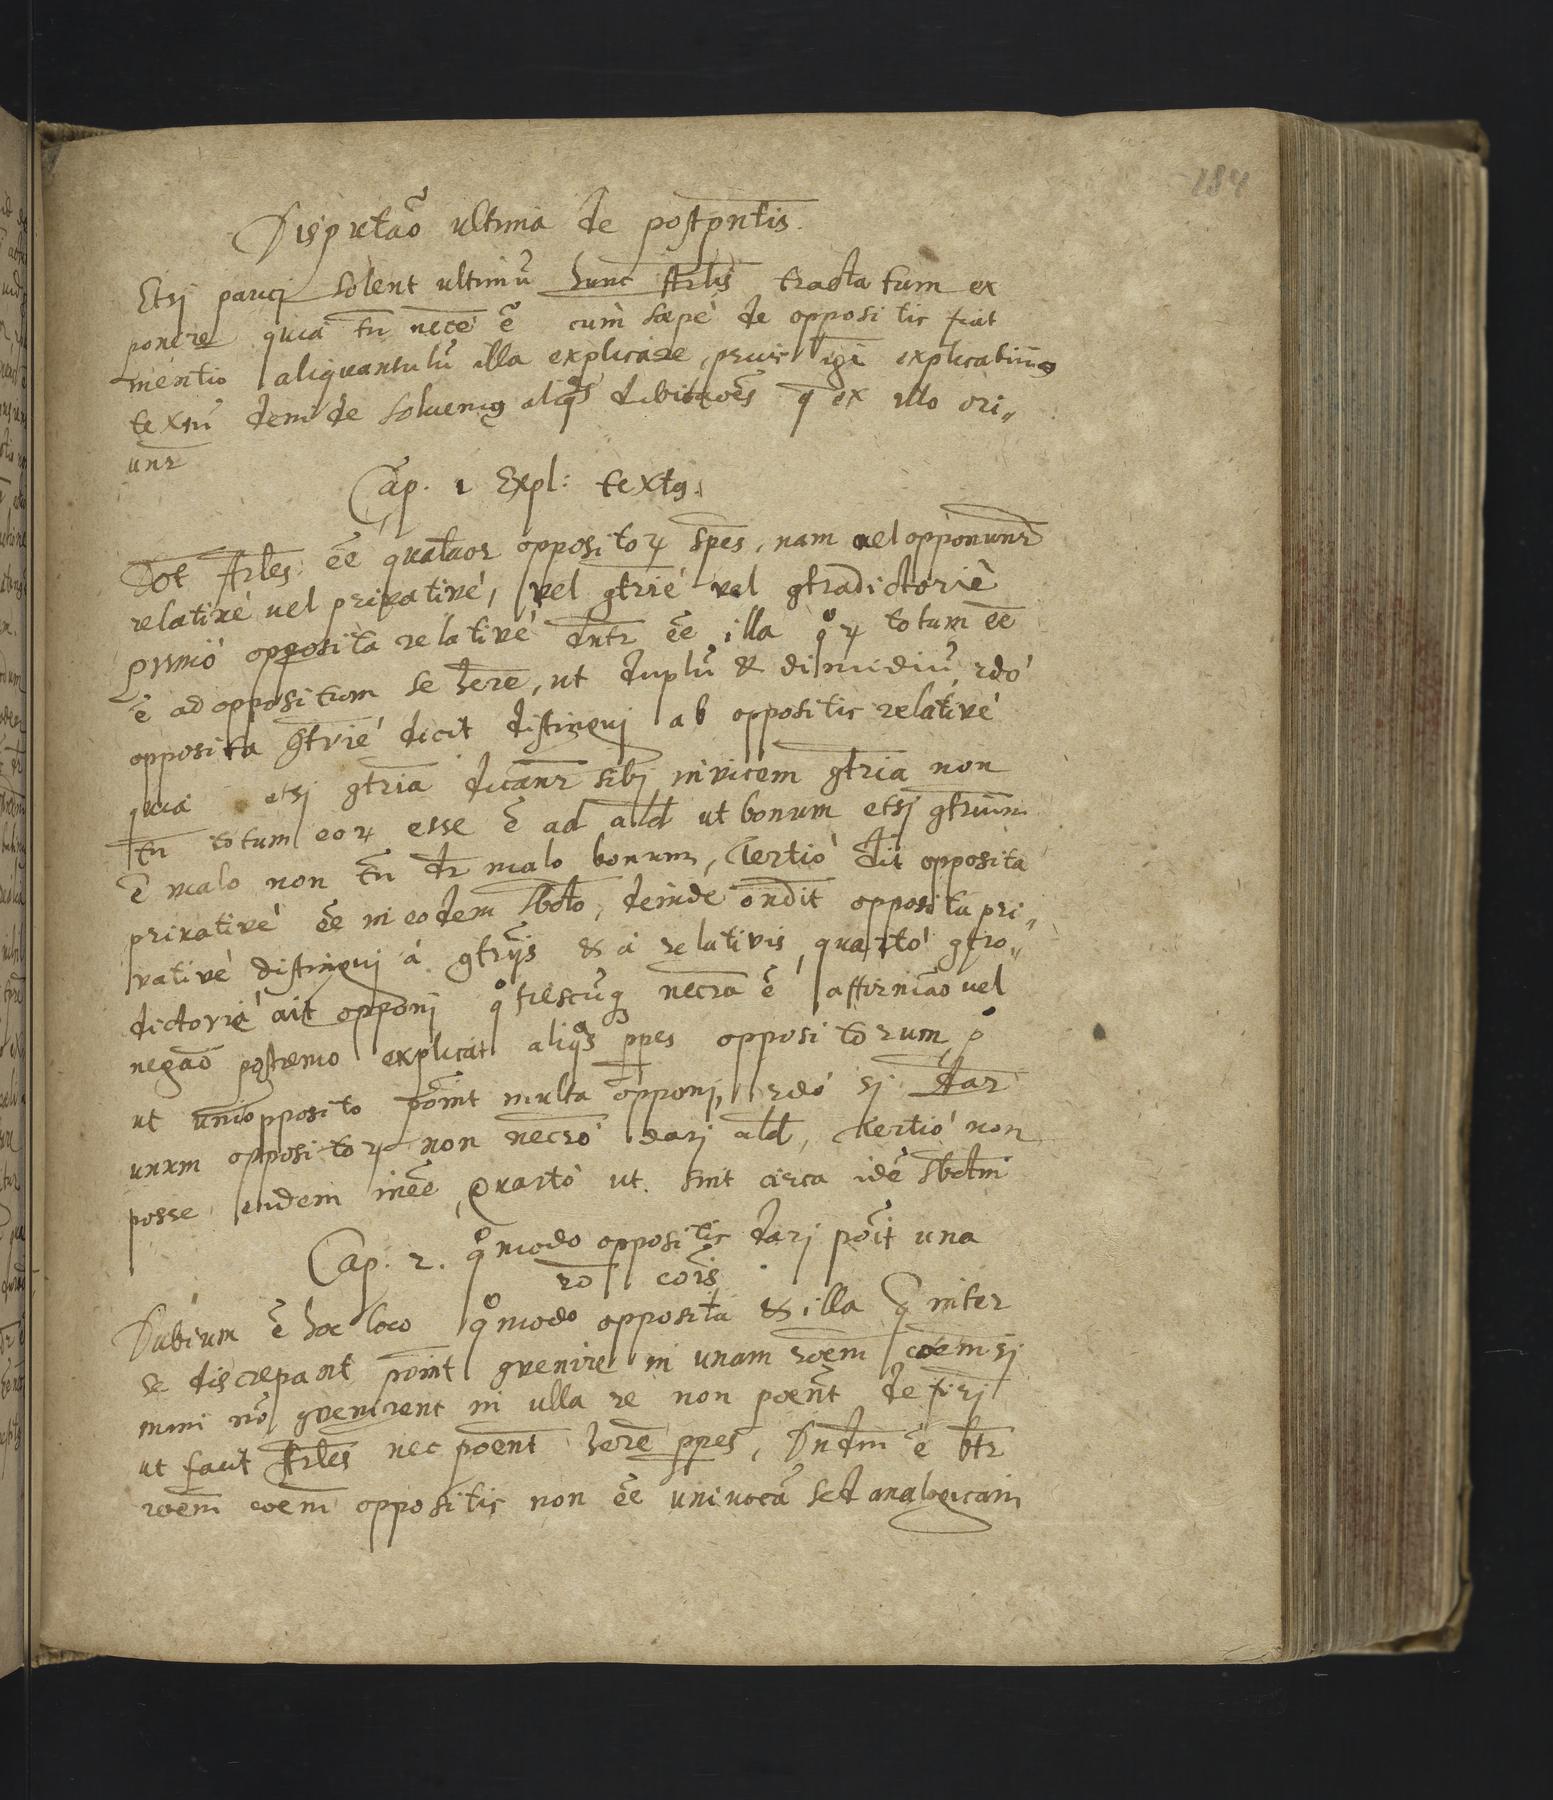 184
Disputaõ ultima de postpntis.
Etsi pauci solent ultimũ hunc Arlis tractatum ex
ponere quia tñ nece ẽ cum sæpè de oppositis fiat
mentio aliquantulũ illa explicare, prius igr explicabimus
textũ deinde soluemus alqs dubitaões q ex illo ori„
unr
Cap. 1 Expl: textus.
Dot Arles ẽe quatuor oppositoꝝ spes, nam vel opponunr
relativè vel privativè, vel gtriè vel gtradictoriè
primò opposita relativè dntr ẽe illa qoꝝ totum ẽe
ẽ ad oppositum se here, ut duplũ & dimidiũ, 2dò
opposita gtriè dicit distingui ab oppositis relativè
quia etsi gtria dicanr sibi invicem gtria non
tñ totum eoꝝ esse ẽ ad ald ut bonum etsi gtrium
ẽ malo non tñ dr malo bonum, Tertiò dit opposita
privativè ẽe in eodem sbcto, deinde ondit opposita pri„
vativè distingui à gtrijs & à relativis, quartò gtra„
dictoriè ait opponi qo necra ẽ affirmaõ vel
negaõ postremo explicat aliqs ppes oppositorum, po
ut uni opposito point multa opponi, 2dò si dar
unum oppositoꝝ non necrò dari ald, tertiò non
posse eidem inẽe, Quartò ut sint circa idẽ sbctm
Cap. 2. qomodo oppositis dari poit una
ro cois
Dubium ẽ hoc loco qomodo opposita & illa q inter
se discrepant point gvenire in unam roem coem si
enim nõ gvenirent in ulla re non poent defiri
ut facit Arles nec poent here ppes, Dndm ẽ btr
roem coem oppositis non ẽe univocã sed analogicam